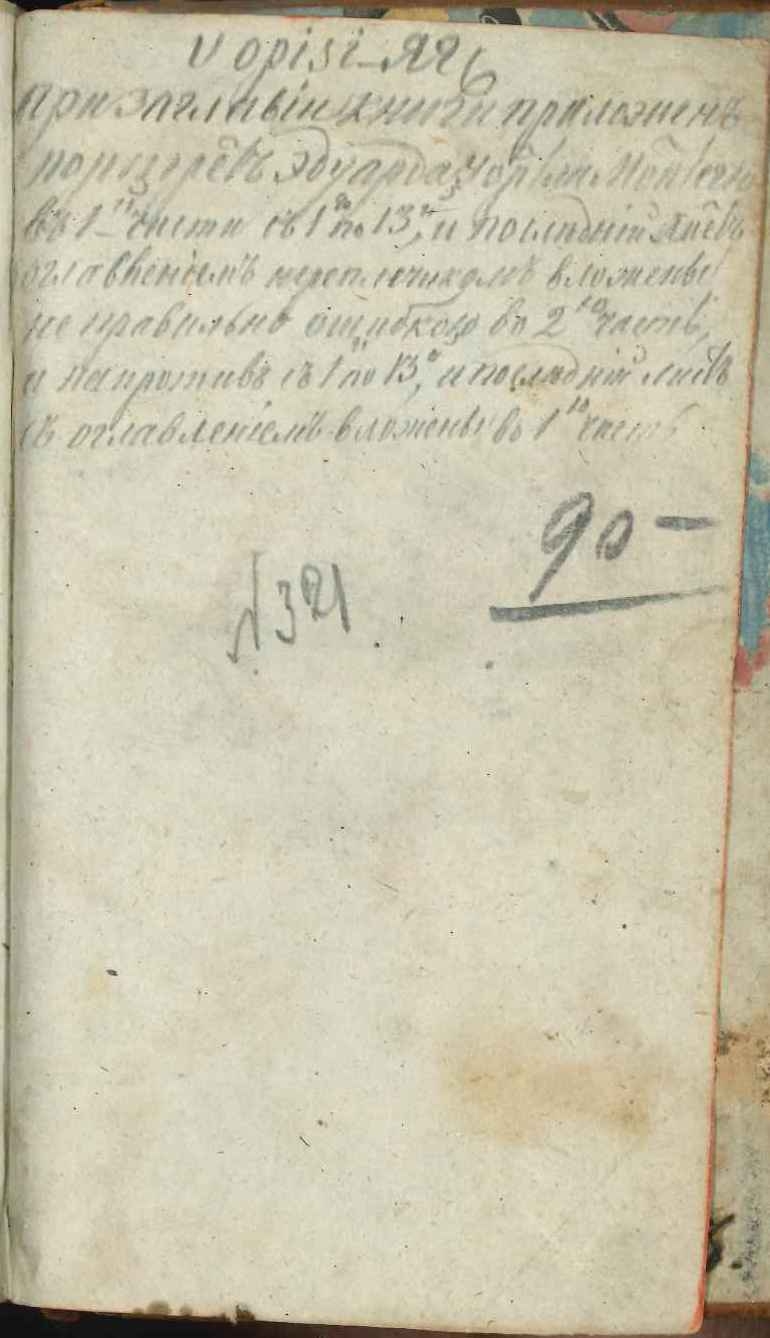 V opisi
при заглавіи книги приложенъ
портретъ Эдуарда
въ 1й части съ 1го по 13е, и последній листъ
оглавленіемъ переплетчикомъ вложены
не правильно ошибкою во 2ю часть,
и напротивъ съ 1го по 13е, и последній листъ
съ оглавленіемъ вложены въ 1ю часть
90 —
№ 321